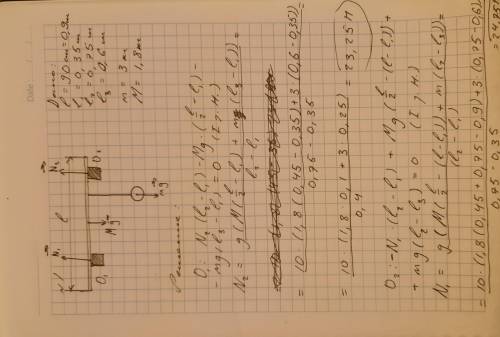 Дано:
l = 90 см = 0,9 м
l₁ = 0,35 м
l₂ = 0,75 м
l₃ = 0,6 м
m = 3 кг
M = 1,8 кг
N₁
N₂
l
O₁
O₂
Mg
mg
Решение:
O₁: N₂(l₂ - l₁) - Mg·(l/2 - l₁) -
- mg(l₃ - l₁) = 0 (I з. Н.)
N₂ = g(M(l/2 - l₁) + m(l₃ - l₁)) / (l₂ - l₁) =
= 10·(1,8(0,45 - 0,35) + 3(0,6 - 0,35)) / (0,75 - 0,35) =
= 10·(1,8·0,1 + 3·0,25) / 0,4 = 23,25 Н
O₂: -N₁(l₂ - l₁) + Mg(l/2 - (l - l₂)) +
+ mg(l₂ - l₃) = 0 (I з. Н.)
N₁ = g(M(l/2 - (l - l₂)) + m(l₂ - l₃)) / (l₂ - l₁) =
= 10·(1,8(0,45 + 0,75 - 0,9) + 3(0,75 - 0,6)) / (0,75 - 0,35)